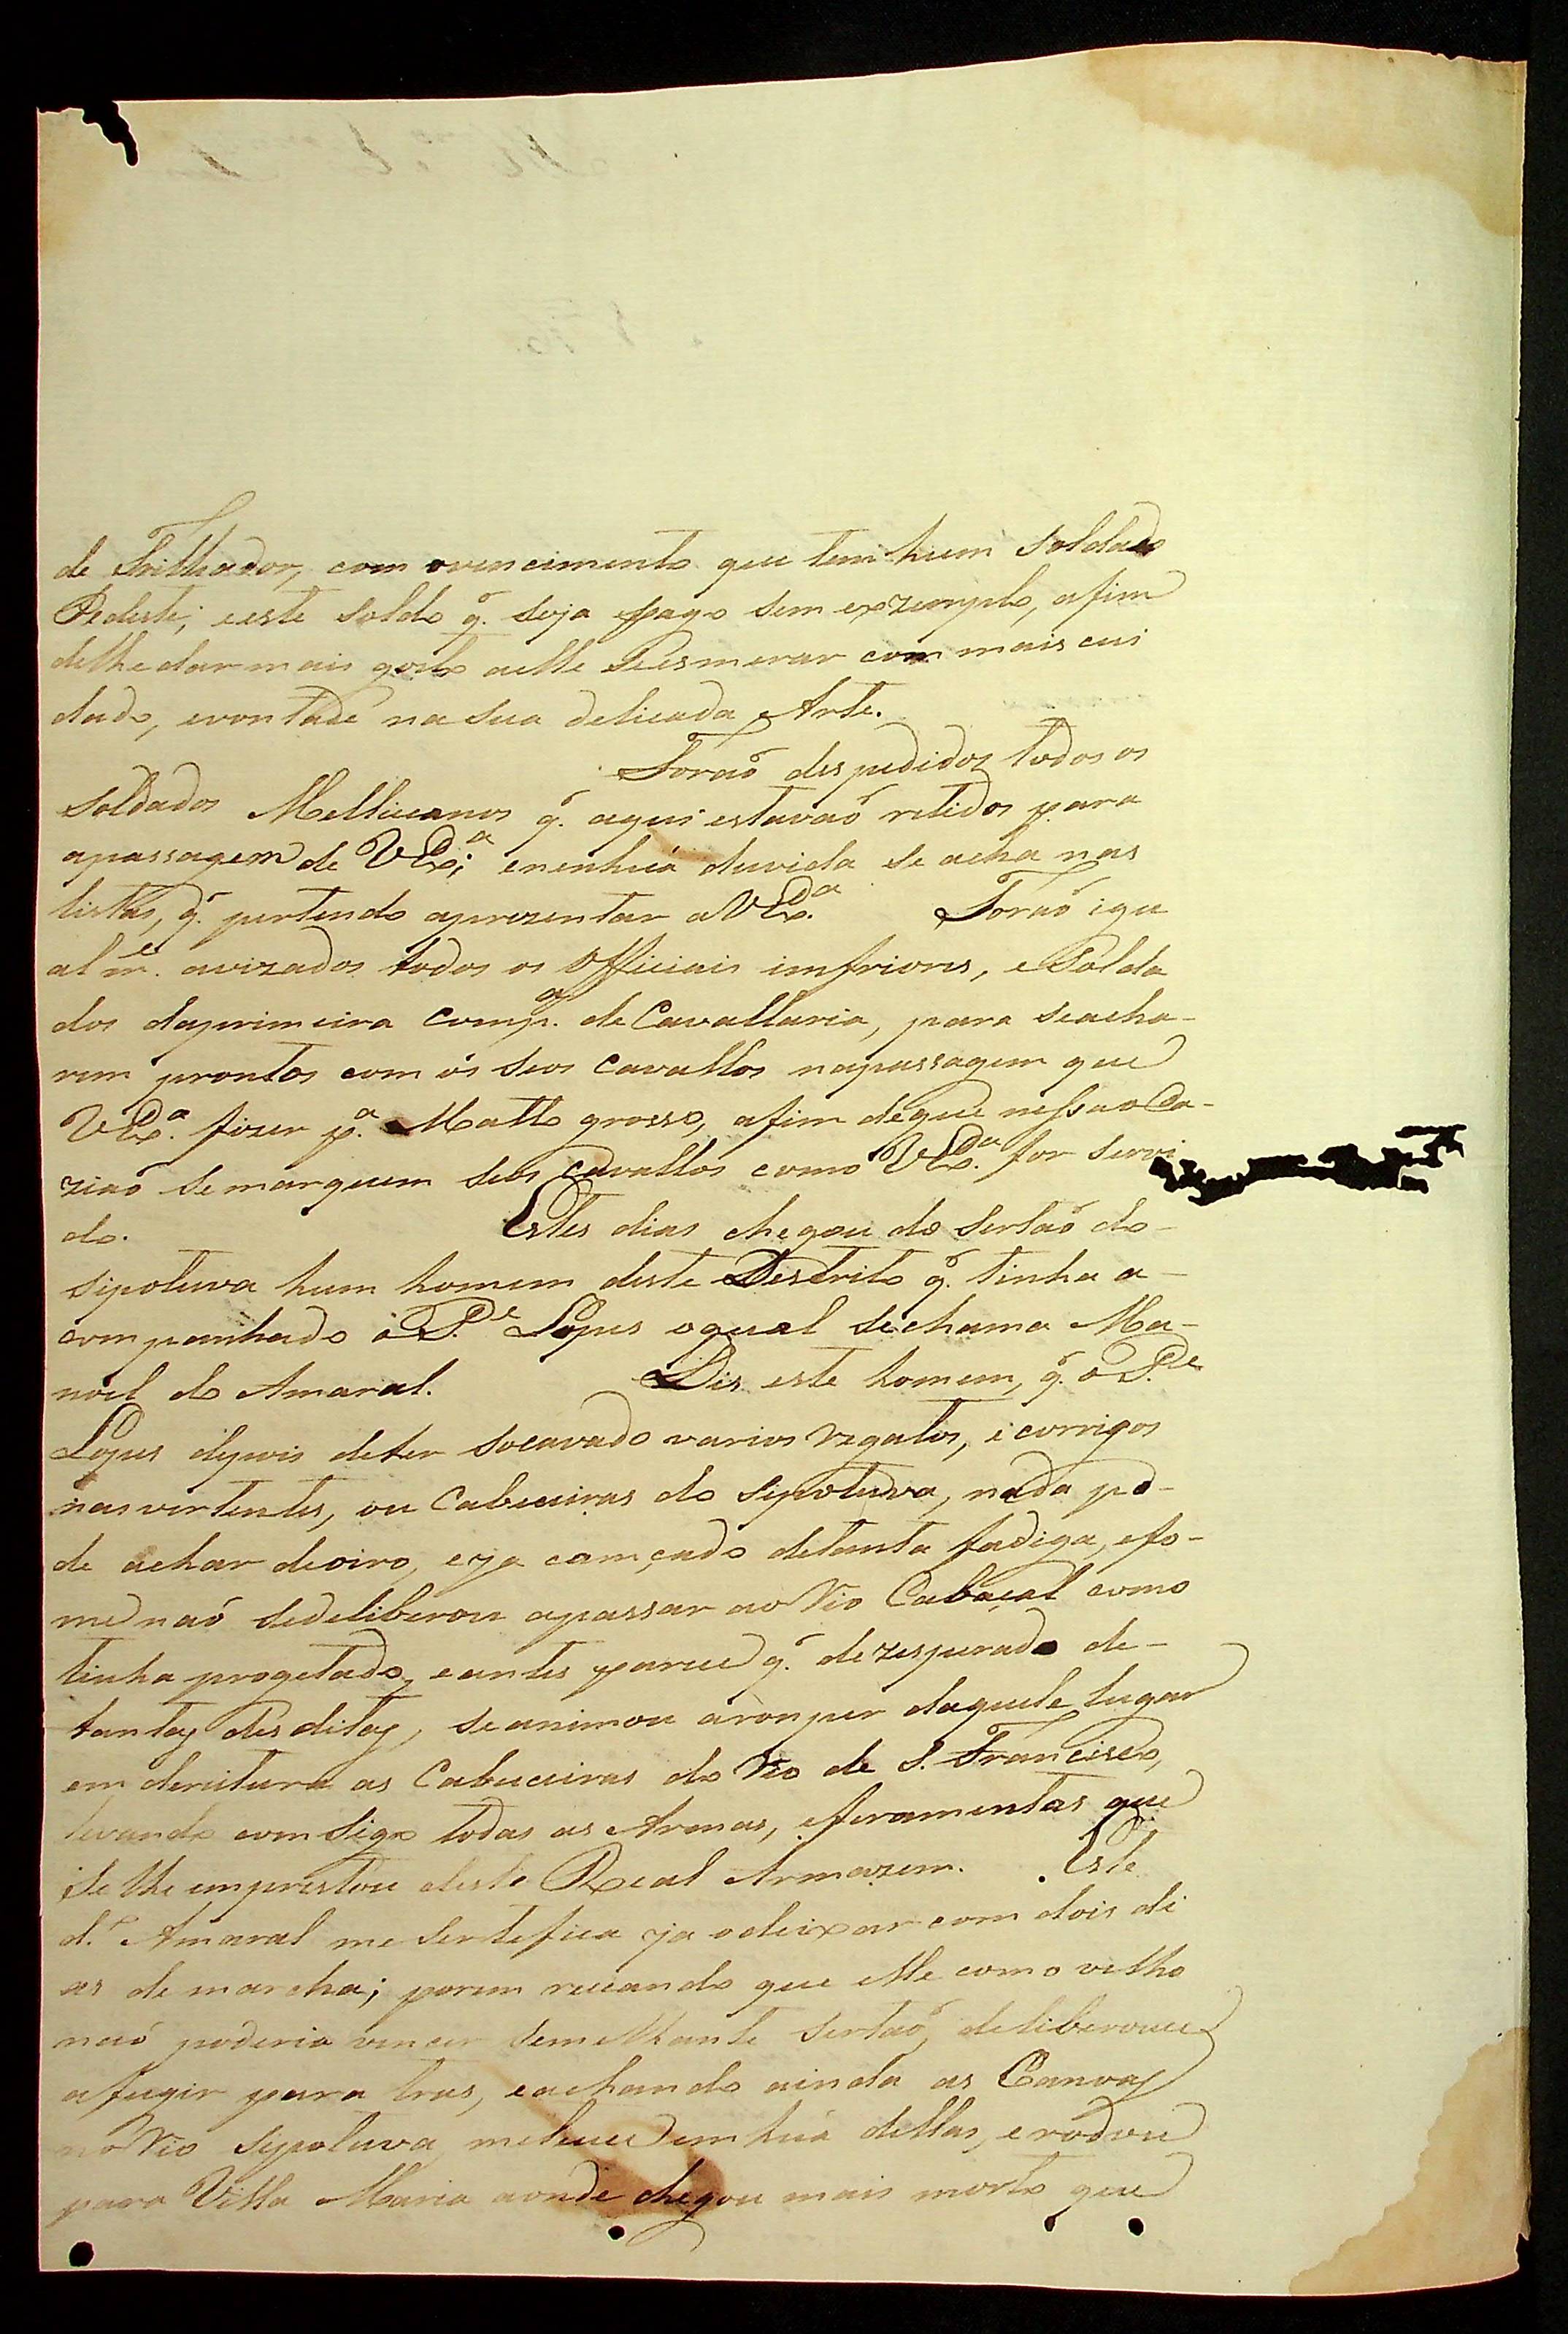 de Trilhador, com ovencimento que tem hum Soldado
Pedeste; eeste soldo q̃. seja pago sem exzemplo, afim
delhe dar mais gosto aelle Seesmerar com mais cui
dado, evontade na sua delicada Arte.
Foraõ despedidos todos os
soldados Mellicianos q̃. aqui estavaõ retidos para
apassagem de VEx.ª; enenhuã duvida se acha nas
listas, q̃. pertendo aprezentar a VEx.ª Foraõ igu
alm.e avizados todos os Officiais imfriores, e Solda
dos daprimeira comp.ª de Cavallaria, para seacha-
rem prontos com ós seos Cavallos napassagem que
VEx.ª fizer p.ª Matto grosso, afim deque nessa o Ca-
ziaõ semarquem seos cavallos como VEx.ª for servi
do. Estes dias chegou do Sertaõ do-
sipotuva hum homem deste Destrito q̃. tinha a-
companhado ó P.e Lopes oqual sechama Ma-
noel do Amaral. Dis este homem, q̃. ó P.e
Lopes depois deter socavado varios regatos, é corrigos
nasvertentes, ou Cabeceiras do Sipotuva, nada po-
de achar deoiro, eja camçado detanta fadiga, efo-
me naõ sedeliberou apassar ao Rio Cabaçal como
tinha progetado, eantes parece q̃. dezesperado de-
tantas desditas, seanimou aromper daquele lugar
em deritura as Cabeceiras do Rio de S. Francisco,
levando comsigo todas as Armas, eferamentas que
selhe imprestou deste Real Armazem. Este
d.º Amaral me Sertefica ja odeixar com dois di
as de marcha; porem receando que elle como velho
naõ poderia vencer Semelhante Sertaõ, deliberouce
afugir para tras, eachando ainda as Canoas
noRio Sipotuva, meteuce em huã dellas, erodou
para Villa Maria aonde chegou mais morto que